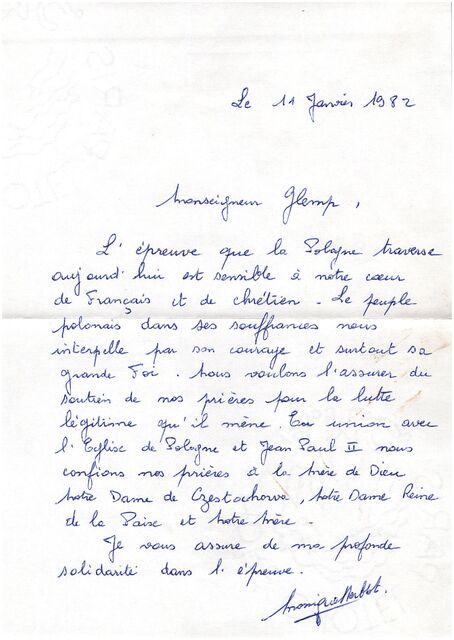 Le 11 Janvier 1982
Monseigneur Glemp,
L'épreuve que la Pologne traverse
aujourd'hui est sensible à notre cœur
de Français et de chrétien. Le peuple
polonais dans ses souffrances nous
interpelle par son courage et surtout sa
grande Foi. Nous voulons l'assurer du
soutien de nos prières pour la lutte
légitime qu'il mène. En union avec
l'Eglise de Pologne et Jean Paul II nous
confions nos prières à la Mère de Dieu
Notre Dame de Czestochowa, Notre Dame Reine
de la Paix et Notre Mère.
Je vous assure de ma profonde
solidarité dans l'épreuve.